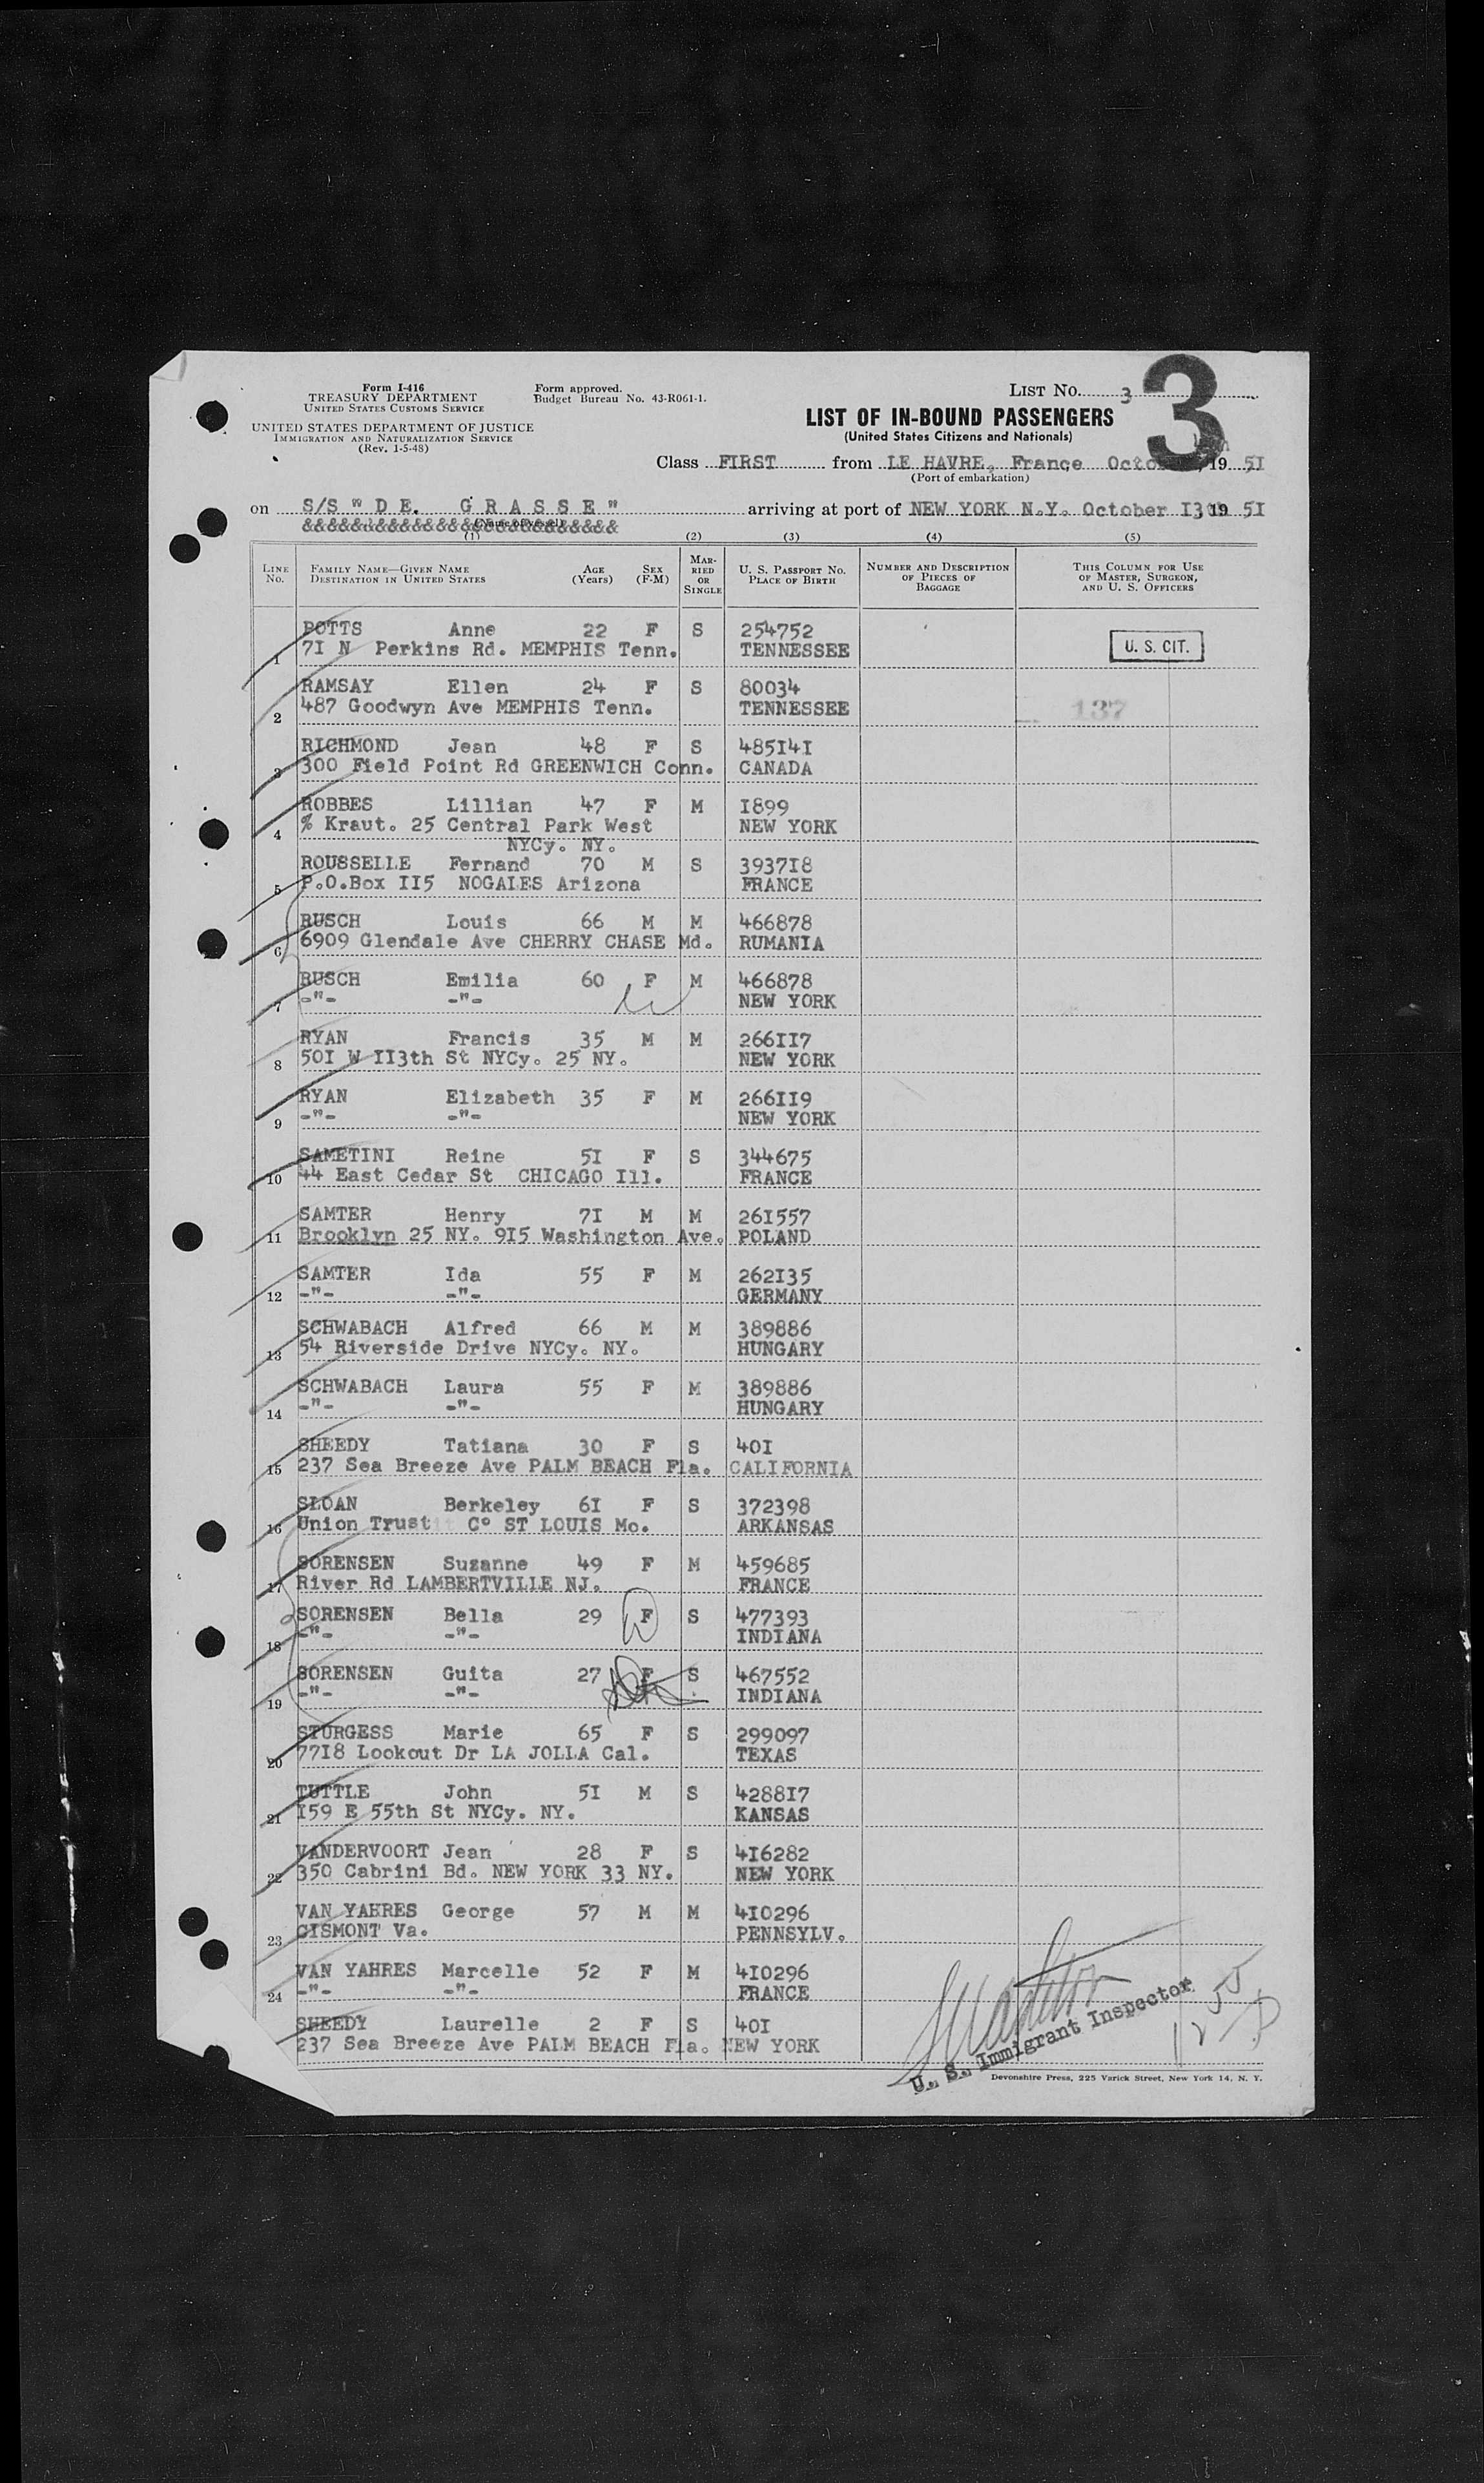 Form I-416
TREASURY DEPARTMENT
UNITED STATES CUSTOMS SERVICE
UNITED STATES DEPARTMENT OF JUSTICE
IMMIGRATION AND NATURALIZATION SERVICE
(Rev. 1-5-48)
Form approved.
Budget Bureau No. 43-R061-1.
LIST No. 3
3
LIST OF IN-BOUND PASSENGERS
(United States Citizens and Nationals)
Class FIRST from LE HAVRE, France Octo 19 5I
(Port of embarkation)
on S/S "DE. GRASSE" arriving at port of NEW YORK N.Y. October I3 19 5I
(Name of vessel)
(1) (2) (3) (4) (5)
LINE No. FAMILY NAME—GIVEN NAME DESTINATION IN UNITED STATES AGE (Years) SEX (F-M) MARRIED OR SINGLE U. S. PASSPORT NO. PLACE OF BIRTH NUMBER AND DESCRIPTION OF PIECES OF BAGGAGE THIS COLUMN FOR USE OF MASTER, SURGEON, AND U. S. OFFICERS
POTTS Anne 22 F S 254752
1 7I N Perkins Rd. MEMPHIS Tenn. TENNESSEE U. S. CIT.
RAMSAY Ellen 24 F S 80034
2 487 Goodwyn Ave MEMPHIS Tenn. TENNESSEE 137
RICHMOND Jean 48 F S 485I4I
3 300 Field Point Rd GREENWICH Conn. CANADA
ROBBES Lillian 47 F M I899
4 % Kraut. 25 Central Park West NEW YORK
NYCy. NY.
ROUSSELLE Fernand 70 M S 3937I8
5 P.O.Box II5 NOGALES Arizona FRANCE
RUSCH Louis 66 M M 466878
6 6909 Glendale Ave CHERRY CHASE Md. RUMANIA
RUSCH Emilia 60 F M 466878
7 -"- -"- NEW YORK
RYAN Francis 35 M M 266II7
8 50I W II3th St NYCy. 25 NY. NEW YORK
RYAN Elizabeth 35 F M 266II9
9 -"- -"- NEW YORK
SAMETINI Reine 5I F S 344675
10 44 East Cedar St CHICAGO Ill. FRANCE
SAMTER Henry 7I M M 26I557
11 Brooklyn 25 NY. 9I5 Washington Ave. POLAND
SAMTER Ida 55 F M 262I35
12 -"- -"- GERMANY
SCHWABACH Alfred 66 M M 389886
13 54 Riverside Drive NYCy. NY. HUNGARY
SCHWABACH Laura 55 F M 389886
14 -"- -"- HUNGARY
SHEEDY Tatiana 30 F S 40I
15 237 Sea Breeze Ave PALM BEACH Fla. CALIFORNIA
SLOAN Berkeley 6I F S 372398
16 Union Trust C° ST LOUIS Mo. ARKANSAS
SORENSEN Suzanne 49 F M 459685
17 River Rd LAMBERTVILLE NJ. FRANCE
SORENSEN Bella 29 F S 477393
18 -"- -"- INDIANA
SORENSEN Guita 27 F S 467552
19 -"- -"- INDIANA
STURGESS Marie 65 F S 299097
20 77I8 Lookout Dr LA JOLLA Cal. TEXAS
TUTTLE John 5I M S 4288I7
21 I59 E 55th St NYCy. NY. KANSAS
VANDERVOORT Jean 28 F S 4I6282
22 350 Cabrini Bd. NEW YORK 33 NY. NEW YORK
VAN YAHRES George 57 M M 4I0296
23 CISMONT Va. PENNSYLV.
VAN YAHRES Marcelle 52 F M 4I0296
24 -"- -"- FRANCE
SHEEDY Laurelle 2 F S 40I
237 Sea Breeze Ave PALM BEACH Fla. NEW YORK
U. S. Immigrant Inspector
Devonshire Press, 225 Varick Street, New York 14, N. Y.